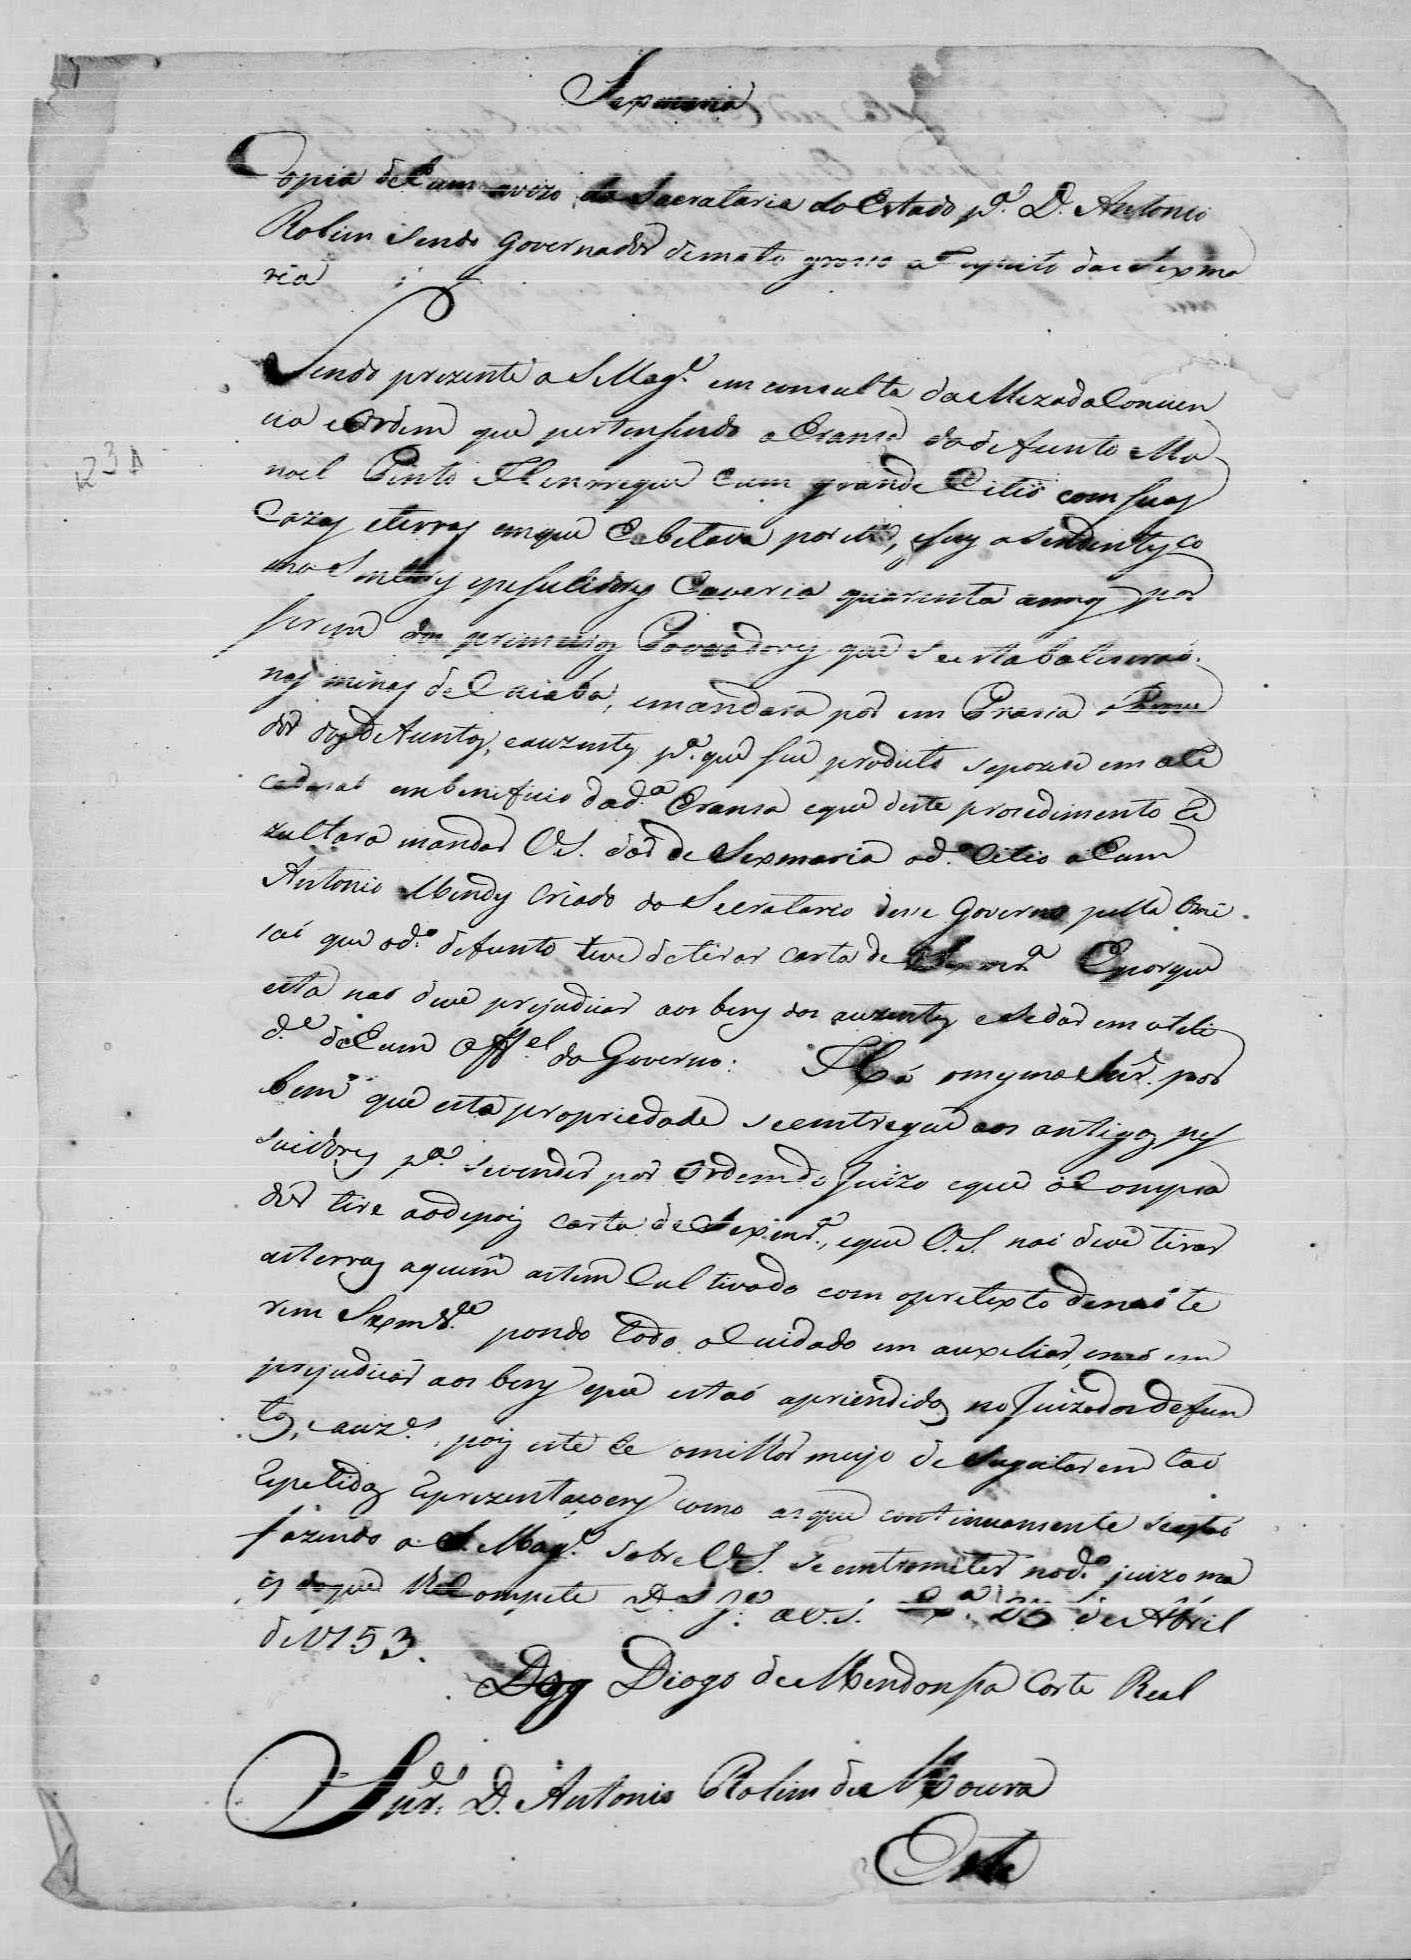 Sexmaria
Copia de hum avizo da Sacrataria do Estado p.ª D. Antonio
Rolim sendo Governador de mato grosso a respeito da Sexma
ria
Sendo prezente a S Mag.e em consulta da Meza da Concien
cia e Ordem que pertensendo a Eransa do defunto Ma
noel Pinto Henrregue hum grande Citio com suas
Cazas e terras em que Habitava por si, e seus asendentes co
mo Snnres e pesuidores haveria quarenta annos por
serem dos primeiros Povoadores que se estabalecerão
nas minas de Cuiaba, mandara por em Prasia o Prove
dor dos defuntos, e auzentes p.ª que seu produto se pozese em a Re
cadasaõ em benificio da d.ª Eransa e que deste prosedimento Re
zultara mandar V.S. dar de Sexmaria o d.º Citio a hum
Antonio Mendes Criado do Secratario dese Governo pella Omi
saõ que o d.º defunto teve de tirar carta de Sexmr.ª E porque
esta naõ deve prejudicar aos bens dos auzentes e se dar em utili
d.e de hum Off.el do Governo: Há o mesmo Snr. por
bem que esta propriedade se entregue aos antigos pes
suidores p.ª se vender por Ordem do Juizo e que o Compra
dor tire ao depois carta de Sexmr.ª, e que V.S. naõ deve tirar
as terras a quem as tem Cultivado com o pretexto de naõ te
rem Sexmr.as pondo todo o Cuidado em auxeliar, e naõ em
prejudicar aos bens que estaõ apriendidos no Juizo dos defun
tos, e auz.es, pois este he o milhor meyo de Sugeitarem taõ
Repetidas Reprezentasoens como as que continuamente se estaõ
fazendo a S. Mag.e sobre V.S. se entrometer no d.º juizo ma
is do que lhe Compete D.s g.e a V.S. Lx.ª 23 de Abril
de 1753.
Diogo de Mendonsa Corte Real
Snr. D. Antonio Rolim de Moura